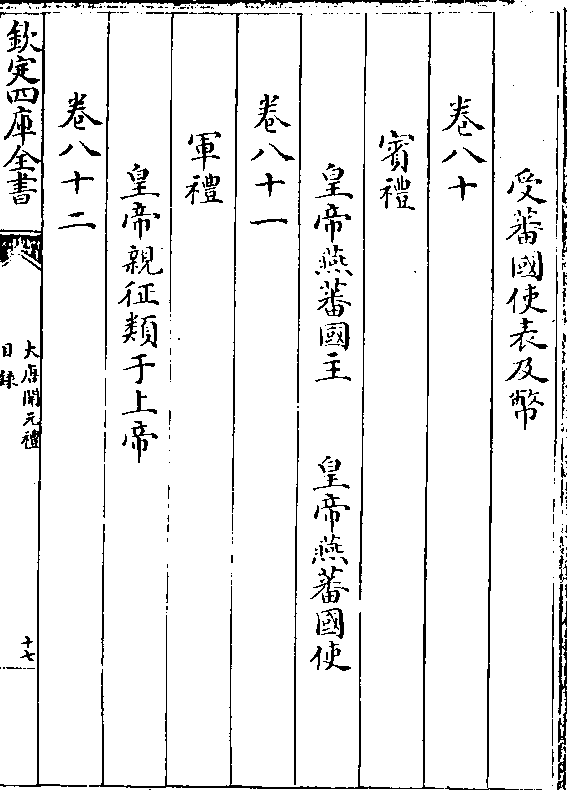 受蕃國使表及幣
卷八十
賓禮
皇帝燕蕃國主　皇帝燕蕃國使
卷八十一
軍禮
皇帝親征類于上帝
卷八十二
欽定四庫全書
大唐開元禮
目録
十七